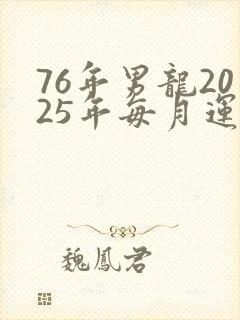 76年男龍20
25年每月運
魏鳳君